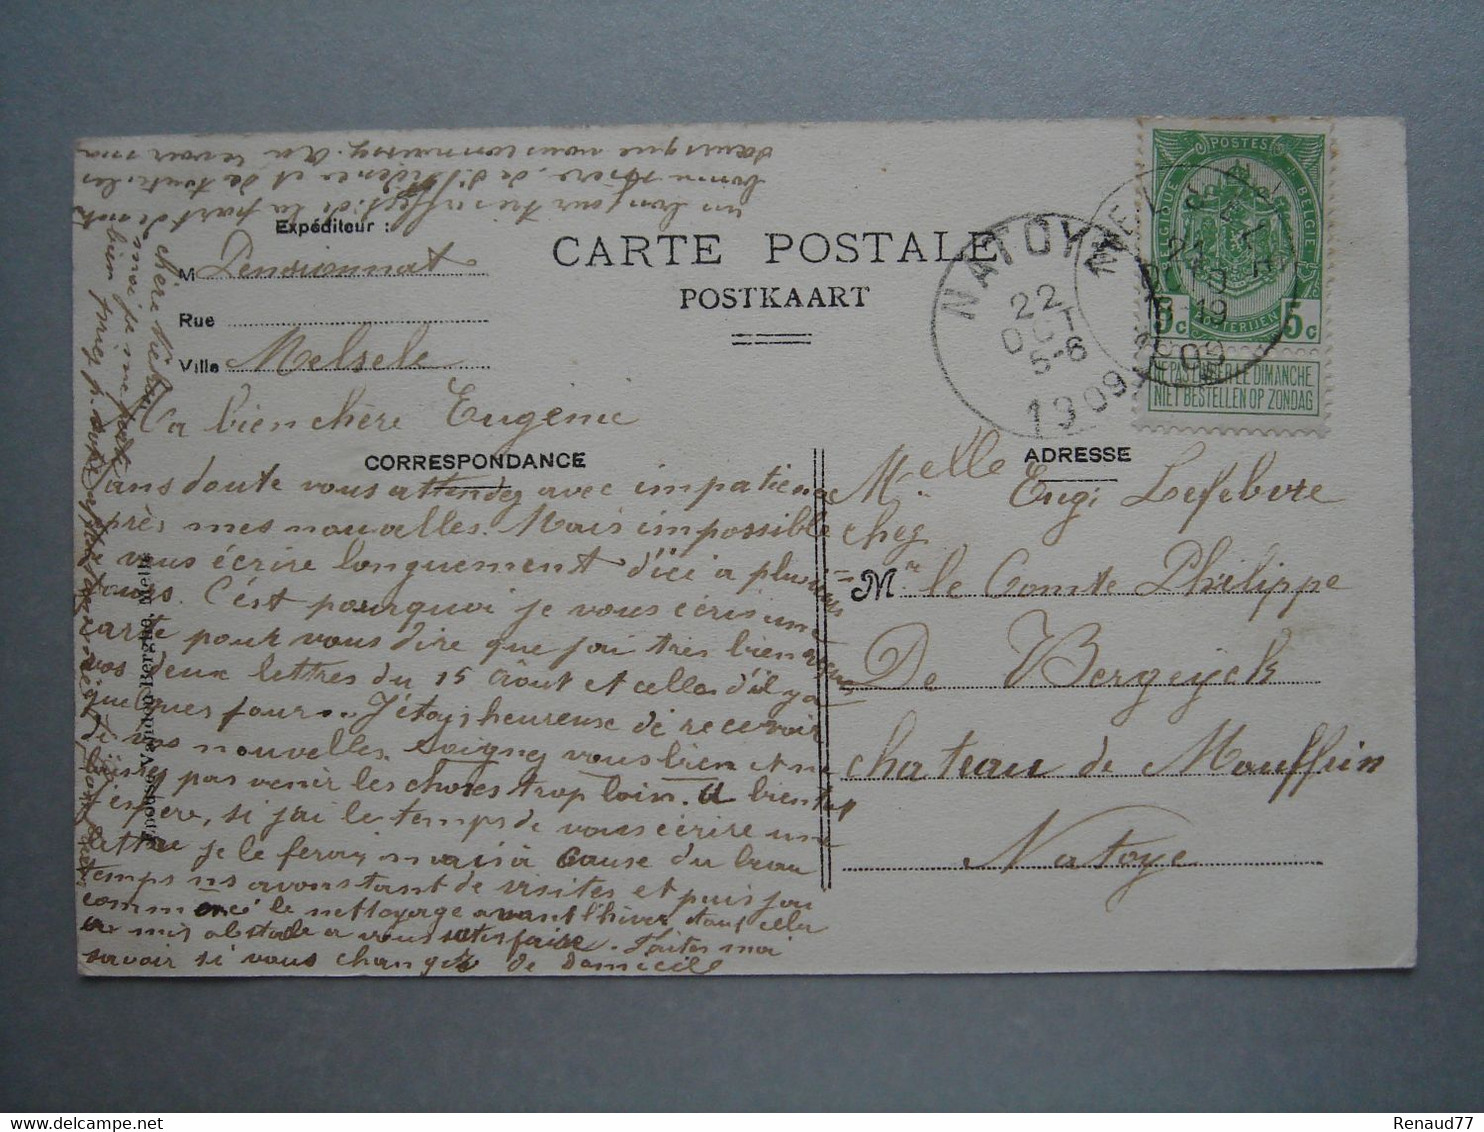 CARTE POSTALE
POSTKAART
Expéditeur :
M Pensionnat
Rue
Ville Melsele
CORRESPONDANCE
ADRESSE
Ma bien chère Eugénie
Sans doute vous attendez avec impatience
après mes nouvelles. Mais impossible
de vous écrire longuement d'ici à plusieurs
jours. C'est pourquoi je vous écris une
carte pour vous dire que j'ai très bien reçu
vos deux lettres du 15 Août et celles d'il y a
quelques jours. J'étais heureuse de recevoir
de vos nouvelles. Soignez vous bien et ne
laissez pas venir les choses trop loin. A bientôt
j'espère, si j'ai le temps de vous écrire une
lettre je le ferai, mais à cause du beau
temps ns avons tant de visites et puis j'ai
commencé le nettoyage avant l'hiver tout cela
a mis obstacle à vous satisfaire. Faites moi
savoir si vous changez de domicile
un bonjour très affect. de la part de notre
bonne Mère, de et de toutes les
sœurs que vous connaissez. Au revoir ma
chère
moi je
bien priez p.
Epouse Vanden Berghe, Melle
Melle Eugi Lefebvre
chez
Mr le Comte Philippe
De Bergeyck
chateau de Mouffrin
Natoye
NATOYE
22
OCT
5-6
1909
MELSELE
21
19
1909
POSTES
BELGIQUE
BELGIE
POSTERIJEN
5c 5c
NE PAS LIVRER LE DIMANCHE
NIET BESTELLEN OP ZONDAG
Renaud77